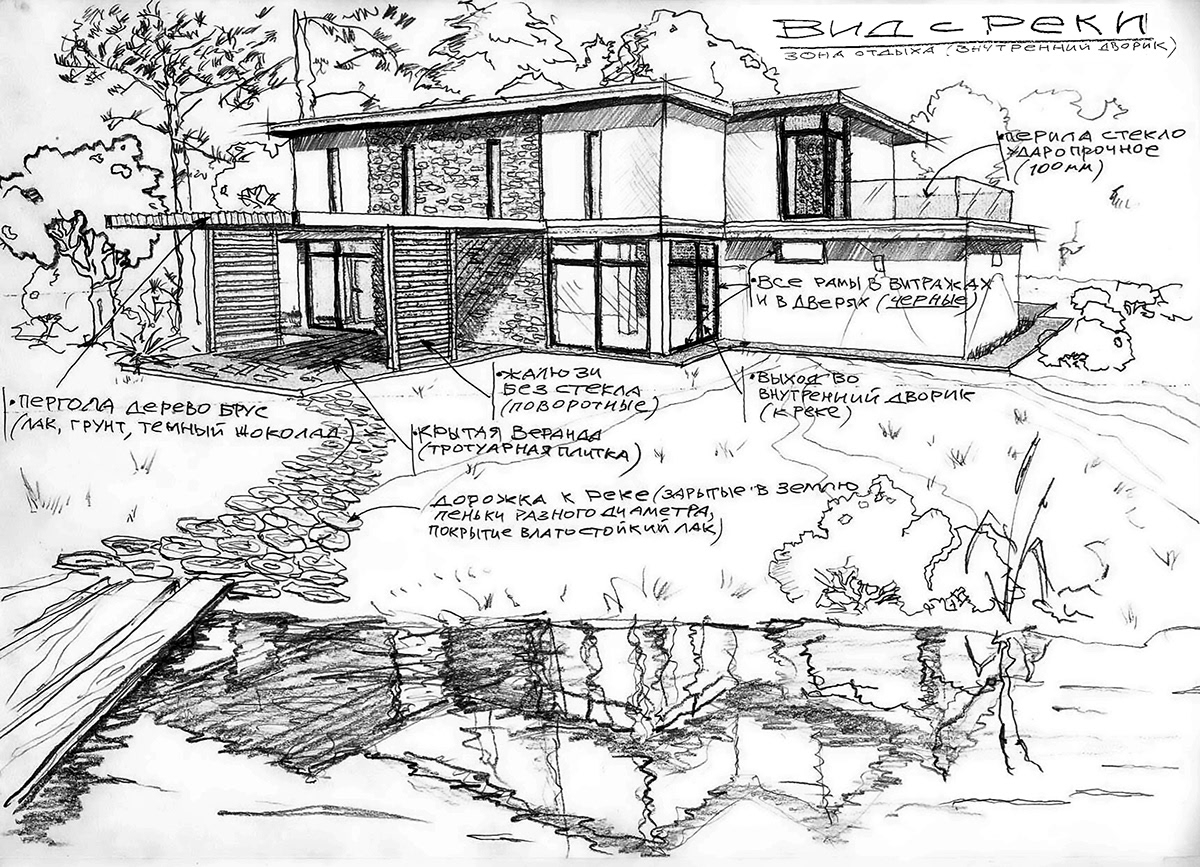 ВИД С РЕКИ
ЗОНА ОТДЫХА (ВНУТРЕННИЙ ДВОРИК)
•ПЕРИЛА СТЕКЛО
УДАРОПРОЧНОЕ
(100мм)
•ВСЕ РАМЫ В ВИТРАЖАХ
И В ДВЕРЯХ (ЧЕРНЫЕ)
•ЖАЛЮЗИ
БЕЗ СТЕКЛА
(ПОВОРОТНЫЕ)
•ВЫХОД ВО
ВНУТРЕННИЙ ДВОРИК
(К РЕКЕ)
•ПЕРГОЛА ДЕРЕВО БРУС
(ЛАК, ГРУНТ, ТЕМНЫЙ ШОКОЛАД)
•КРЫТАЯ ВЕРАНДА
(ТРОТУАРНАЯ ПЛИТКА)
ДОРОЖКА К РЕКЕ (ЗАРЫТЫЕ В ЗЕМЛЮ
ПЕНЬКИ РАЗНОГО ДИАМЕТРА,
ПОКРЫТИЕ ВЛАГОСТОЙКИЙ ЛАК)